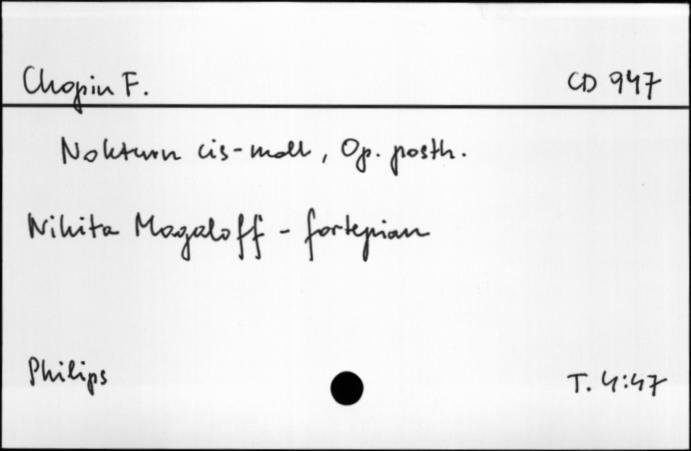 Chopin F. CD 947
Nokturn cis-moll, Op. posth.
Nikita Magaloff - fortepian
Philips T. 4:47